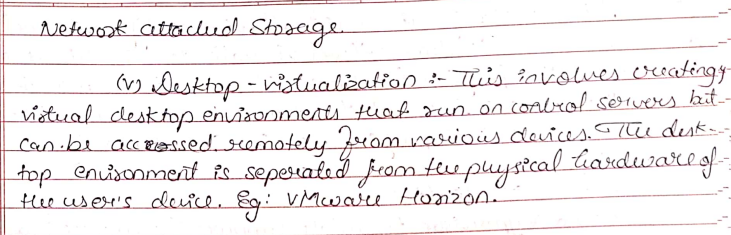 Network attached Storage.
(v) Desktop - virtualization :- This involves creatingy
virtual desktop environments that run on central servers but
can be accessed remotely from various devices. The desk-
top environment is seperated from the physical hardware of
the user's device. Eg: VMware Horizon.